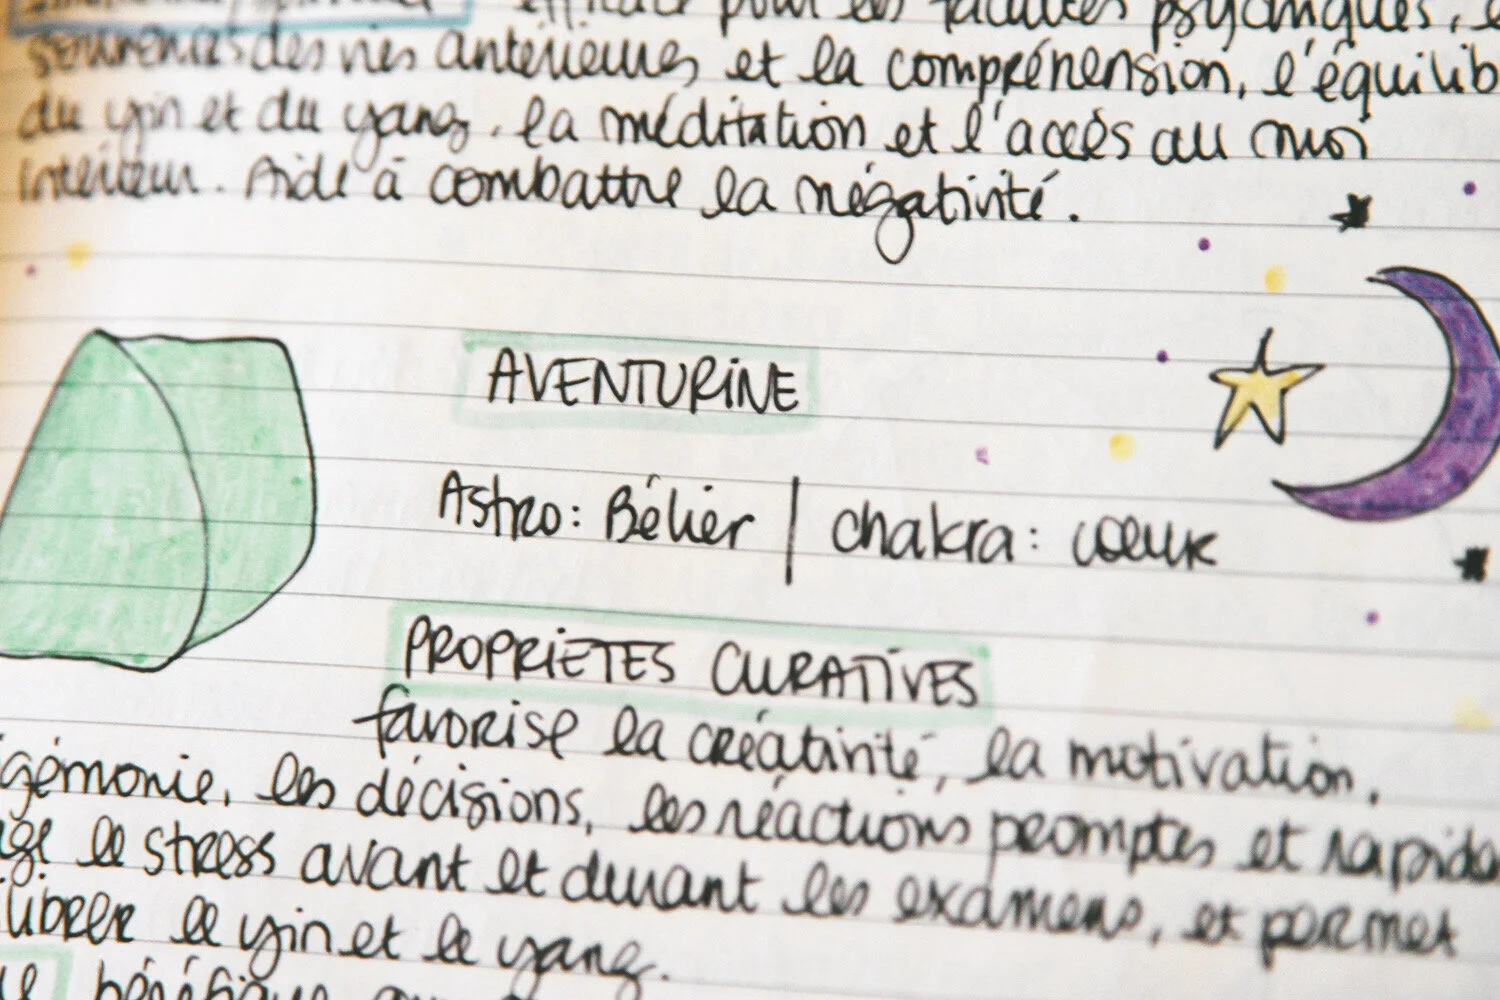 efficace pour les facultés psychiques,
souvenirs des vies antérieures et la compréhension, l'équilib
du yin et du yang, la méditation et l'accès au moi
intérieur. Aide à combattre la négativité.
AVENTURINE
Astro: Bélier | chakra: coeur
PROPRIETES CURATIVES
favorise la créativité, la motivation,
gémonie, les décisions, les réactions promptes et rapide
ge le stress avant et durant les examens, et permet
librer le yin et le yang.
bénéfique